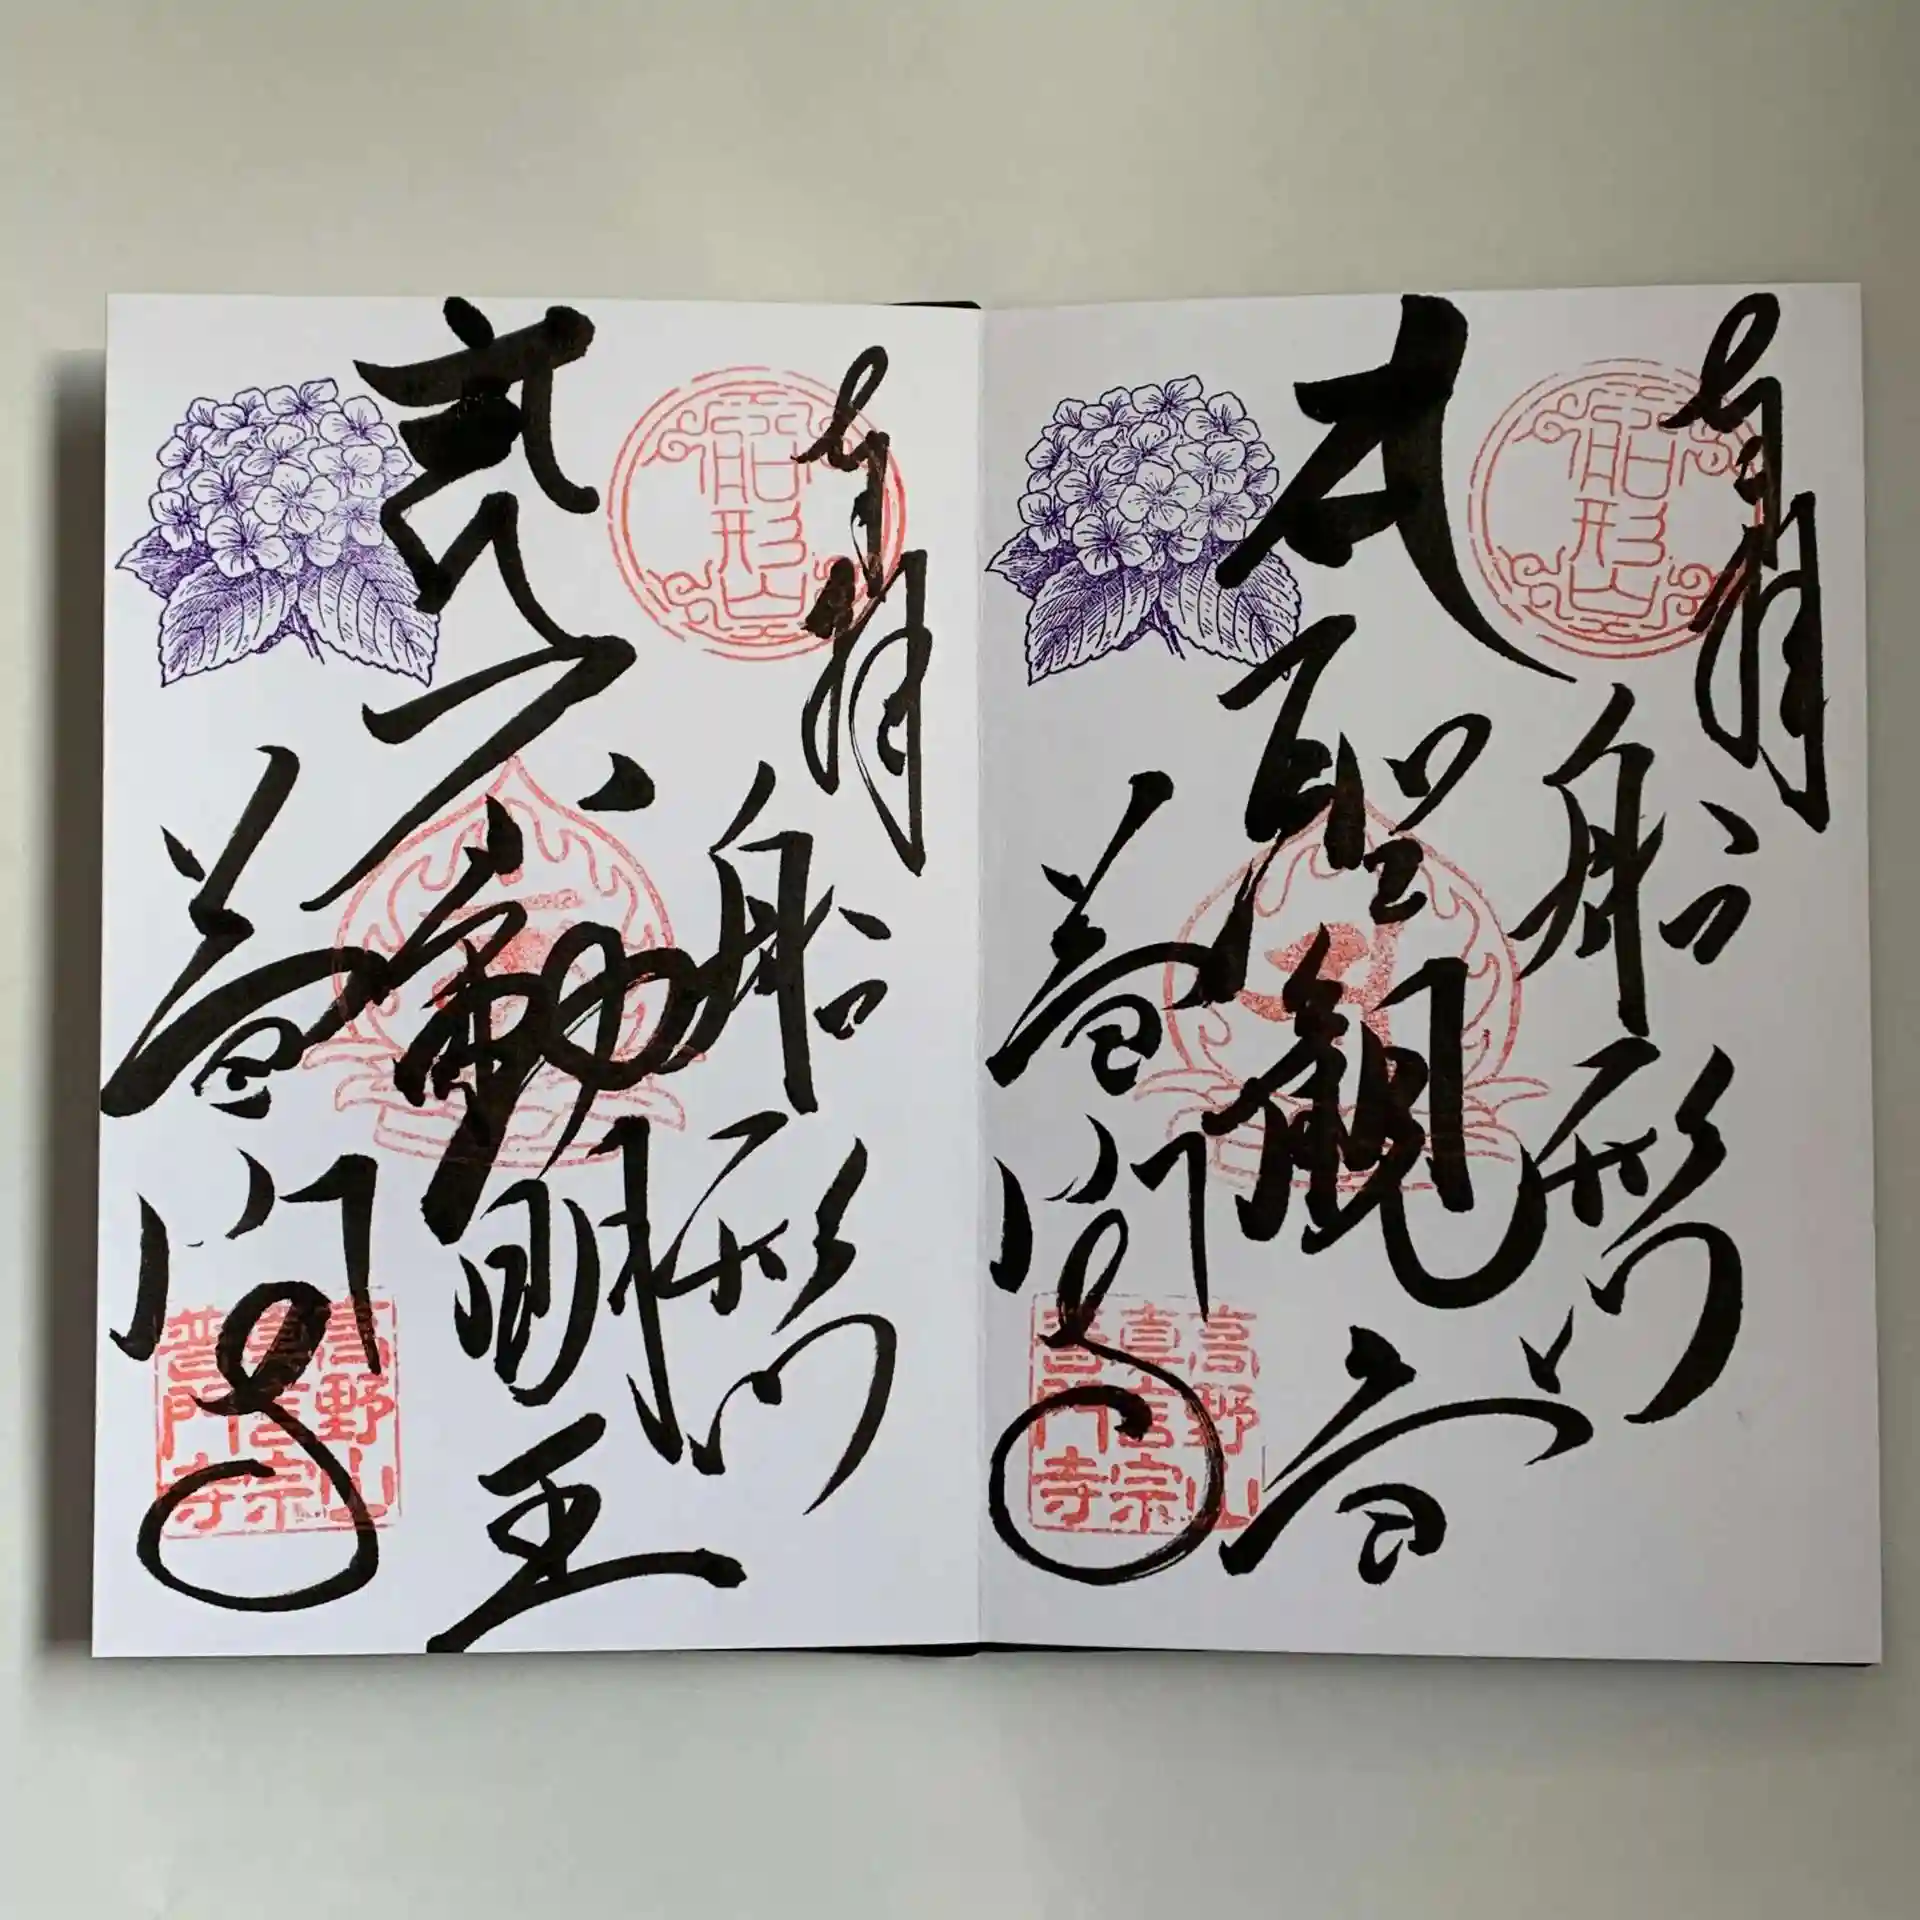 奉拝
船形山
聖観音
普門寺
船形山
高野山
真言宗
普門寺
奉拝
船形山
不動明王
普門寺
船形山
高野山
真言宗
普門寺